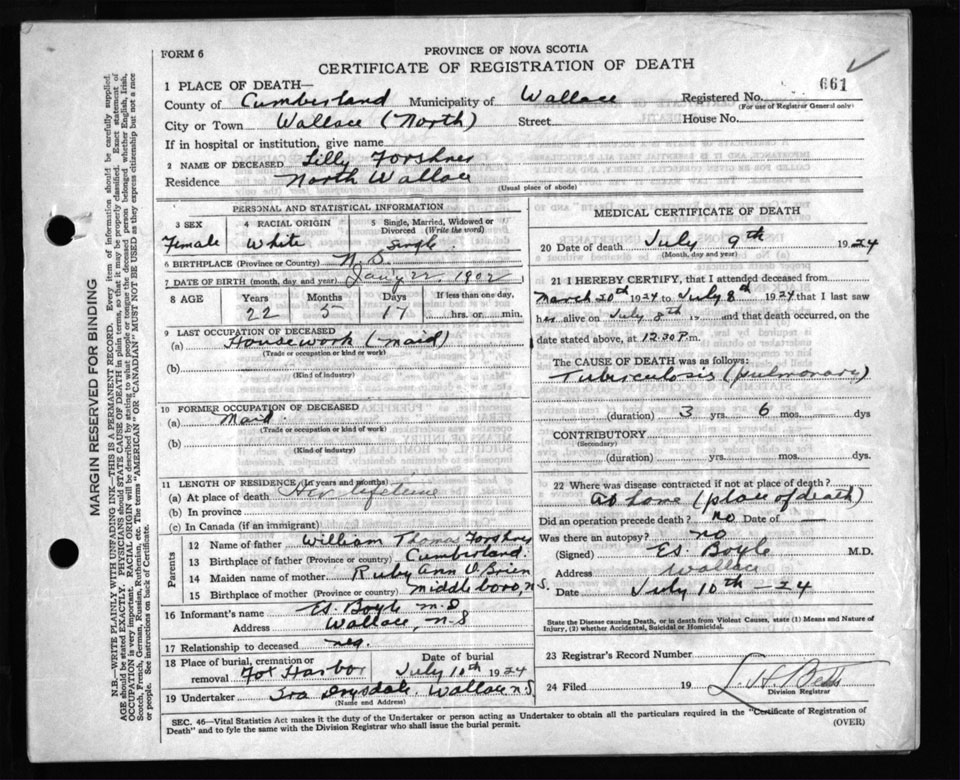 FORM 6
PROVINCE OF NOVA SCOTIA
CERTIFICATE OF REGISTRATION OF DEATH
661
1 PLACE OF DEATH—
County of Cumberland Municipality of Wallace Registered No.
(For use of Registrar General only)
City or Town Wallace (North) Street House No.
If in hospital or institution, give name
2 NAME OF DECEASED Lilly Forshner
Residence North Wallace
(Usual place of abode)
PERSONAL AND STATISTICAL INFORMATION
3 SEX 4 RACIAL ORIGIN 5 Single, Married, Widowed or Divorced (Write the word)
Female White Single
6 BIRTHPLACE (Province or Country)
7 DATE OF BIRTH (month, day, and year) Jany 22 1902
8 AGE Years Months Days If less than one day,
22 5 17 hrs. or min.
9 LAST OCCUPATION OF DECEASED
(a) Housework (maid)
(Trade or occupation or kind or work)
(b)
(Kind of industry)
10 FORMER OCCUPATION OF DECEASED
(a) Maid
(Trade or occupation or kind of work)
(b)
(Kind of industry)
11 LENGTH OF RESIDENCE (In years and months)
(a) At place of death Her lifetime
(b) In province
(c) In Canada (if an immigrant)
Parents
12 Name of father William Thomas Forshner
13 Birthplace of father (Province or country) Cumberland.
14 Maiden name of mother Ruby Ann O'Brien
15 Birthplace of mother (Province or country) Middleboro, N.S.
16 Informant's name Es. Boyle M.D
Address Wallace N.S
17 Relationship to deceased neg.
18 Place of burial, cremation or removal Fox Harbor Date of burial July 10th 1924
19 Undertaker Ira Drysdale, Wallace N.S
(Name and Address)
MEDICAL CERTIFICATE OF DEATH
20 Date of death July 9th 1924
(Month, day and year)
21 I HEREBY CERTIFY, that I attended deceased from
March 20th 1924 to July 8th 1924 that I last saw
her alive on July 8th 19 and that death occurred, on the
date stated above, at 12.30 P.m.
The CAUSE OF DEATH was as follows:
Tuberculosis (pulmonary)
(duration) 3 yrs. 6 mos. dys
CONTRIBUTORY
(Secondary)
(duration) yrs. mos. dys
22 Where was disease contracted if not at place of death?
at home (place of death)
Did an operation precede death? no Date of —
Was there an autopsy? no
(Signed) Es. Boyle M.D.
Address Wallace
Date July 10th - 24
State the Disease causing Death, or in death from Violent Causes, state (1) Means and Nature of
Injury, (2) whether Accidental, Suicidal or Homicidal.
23 Registrar's Record Number
24 Filed 19
Division Registrar
SEC. 46—Vital Statistics Act makes it the duty of the Undertaker or person acting as Undertaker to obtain all the particulars required in the "Certificate of Registration of
Death" and to fyle the same with the Division Registrar who shall issue the burial permit.
(OVER)
MARGIN RESERVED FOR BINDING
N.B.—WRITE PLAINLY WITH UNFADING INK—THIS IS A PERMANENT RECORD. Every item of information should be carefully supplied.
AGE should be stated EXACTLY. PHYSICIANS should STATE CAUSE OF DEATH in plain terms, so that it may be properly classified. Exact statement of
OCCUPATION is very important. RACIAL ORIGIN will be described by stating to what people or tongue the deceased person belonged whether English, Irish,
Scotch, French, German, Russian, Ruthenian, etc. The terms "AMERICAN" or "CANADIAN" MUST NOT BE USED as they express citizenship but not a race
or people. See instructions on back of Certificate.